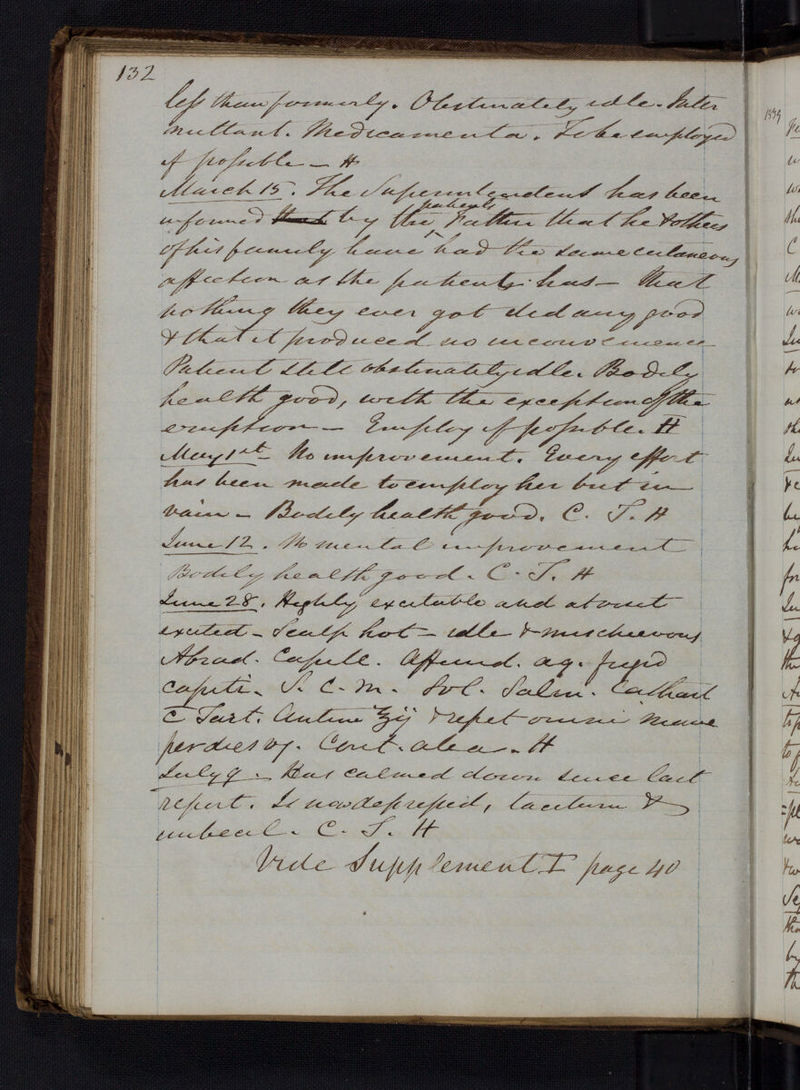 132
less than formerly. Obstinately idle. Inter
mittant. Medicamenta. To be employed
if possible — H
March 15. The Superintendent has been
informed that by the patients Father that he & others
of his family have had the same cutaneous
affection as the patient has — that
nothing they ever got did any good
& that it produced no inconvenience
Patient still obstinately idle. Bodily
health good, with the exception of the
eruption — Employ if possible. H
May 1st No improvement. Every effort
has been made to employ her but in
vain — Bodily health good. C. T. H
June 12. No mental improvement
Bodily health good. C. T. H
June 28. Highly excitable and at
excited — Scalp hot — idle & mischievous
Abrad. Capill. Affund. aq. frigid
capiti. S. C. M. Sol. Salin. Cathart
c Tart. Antim ʒij & repet omni mane
per dies vj. Cont. alea. H
July 9. Has calmed down since last
report. Is now depressed, taciturn &
imbecil. C. T. H
Vide Supplement I page 40
1839